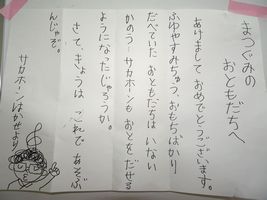 まつぐみの
おともだちへ
あけまして おめでとうございます。
ふゆやすみちゅう、おもちばかり
たべていた おともだちは いない
かのう〜 サカホーンも おとをだせる
ようになったじゃろうか。
さて、きょうは これで あそぶ
んじゃぞ。
サカホーンはかせより